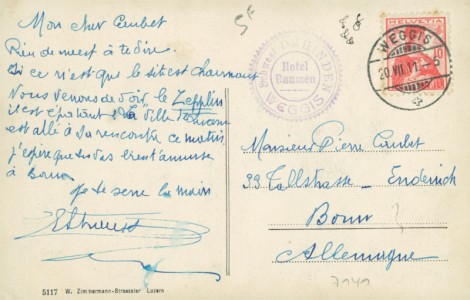 Mon cher Caubet
Rien de neuf à te dire.
Si ce n'est que le site est charmant
Nous venons de voir le Zeppelin
il est épatant "Ville de Lucerne"
est allé à sa rencontre ce matin
J'espère que tu vas bien t'amuser
à Bonn
Je te serre la main
HELVETIA
10
WEGGIS
20.VII.11. - 5
Hotel
Baumen
WEGGIS
Monsieur Pierre Caubet
33 Tallstrasse - Endenich
Bonn
Allemagne
7141
5117 W. Zimmermann-Strassler Luzern